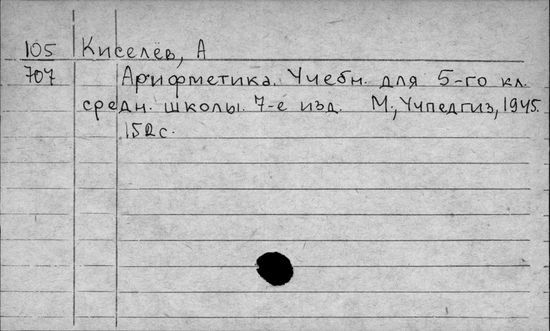 105 Киселёв, А
707 Арифметика. Учебн. для 5-го кл.
средн. школы. 7-е изд. М., Учпедгиз, 1945.
152 с.